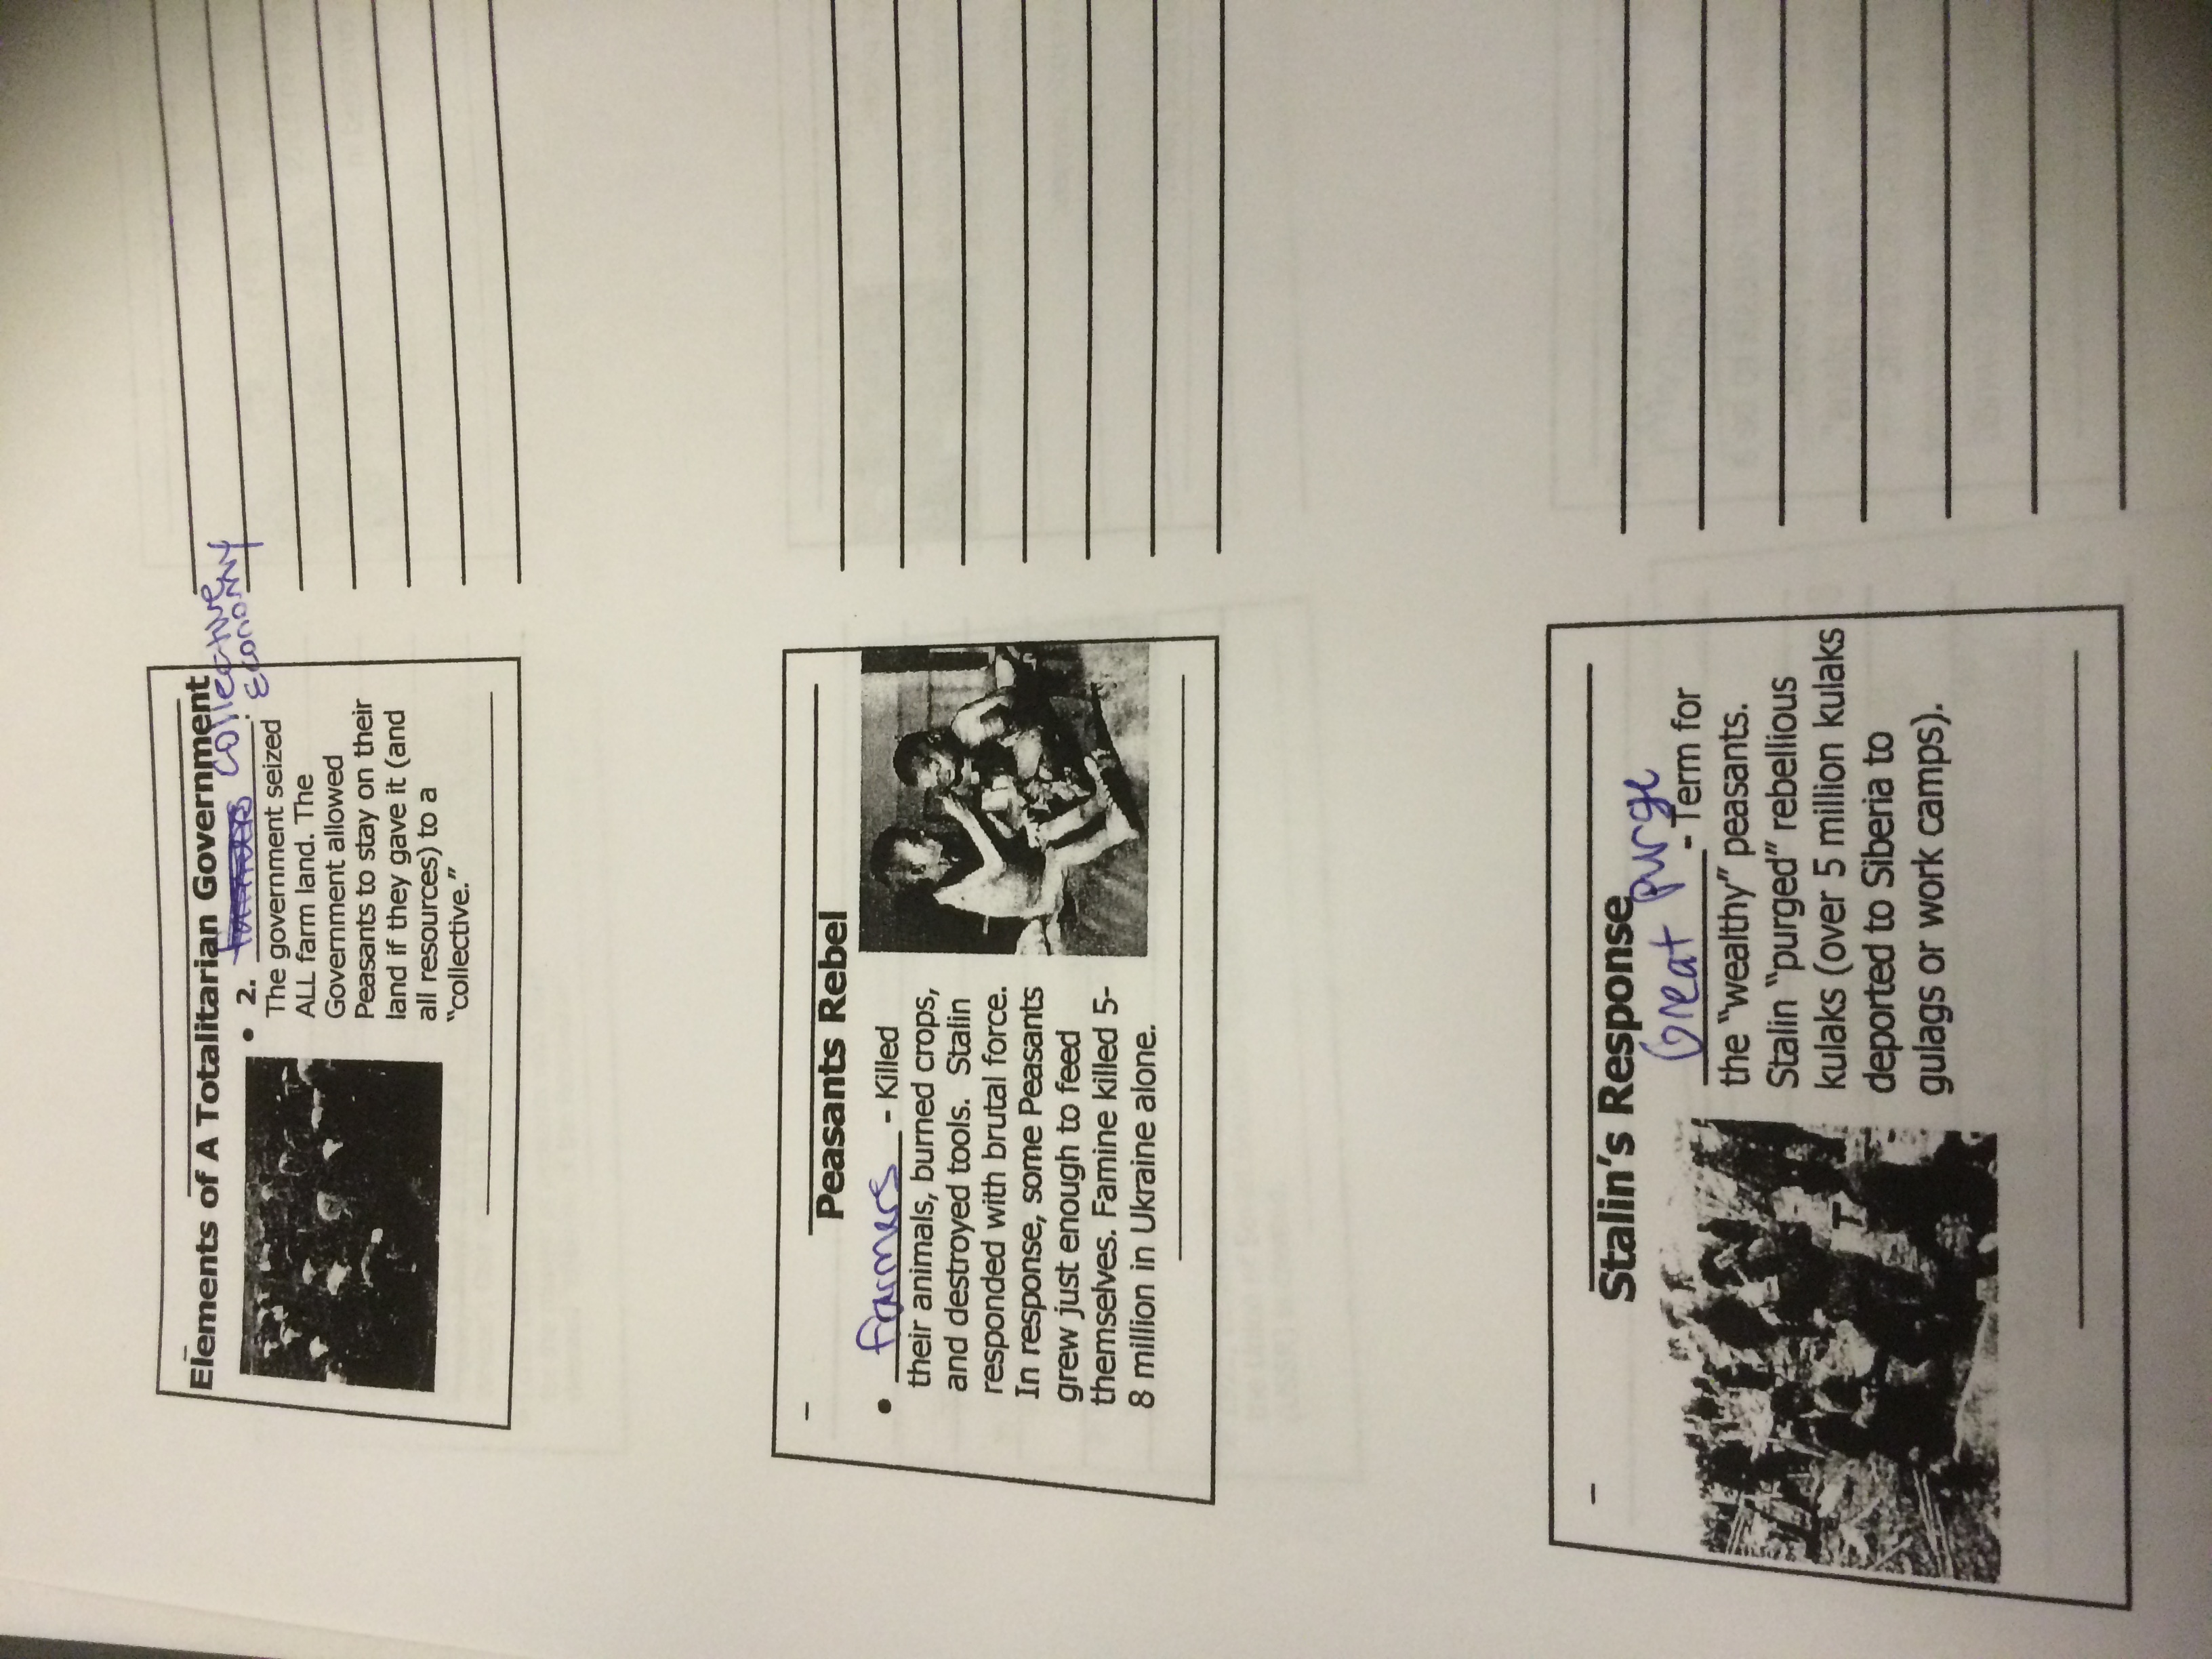 Elements of A Totalitarian Government
• 2. farmers Collective
Economy
The government seized
ALL farm land. The
Government allowed
Peasants to stay on their
land if they gave it (and
all resources) to a
“collective.”
Peasants Rebel
• farmers - Killed
their animals, burned crops,
and destroyed tools. Stalin
responded with brutal force.
In response, some Peasants
grew just enough to feed
themselves. Famine killed 5-
8 million in Ukraine alone.
Stalin’s Response
Great Purge - Term for
the “wealthy” peasants.
Stalin “purged” rebellious
kulaks (over 5 million kulaks
deported to Siberia to
gulags or work camps).
the Union of Soviet Socialist
(USSR) is created.